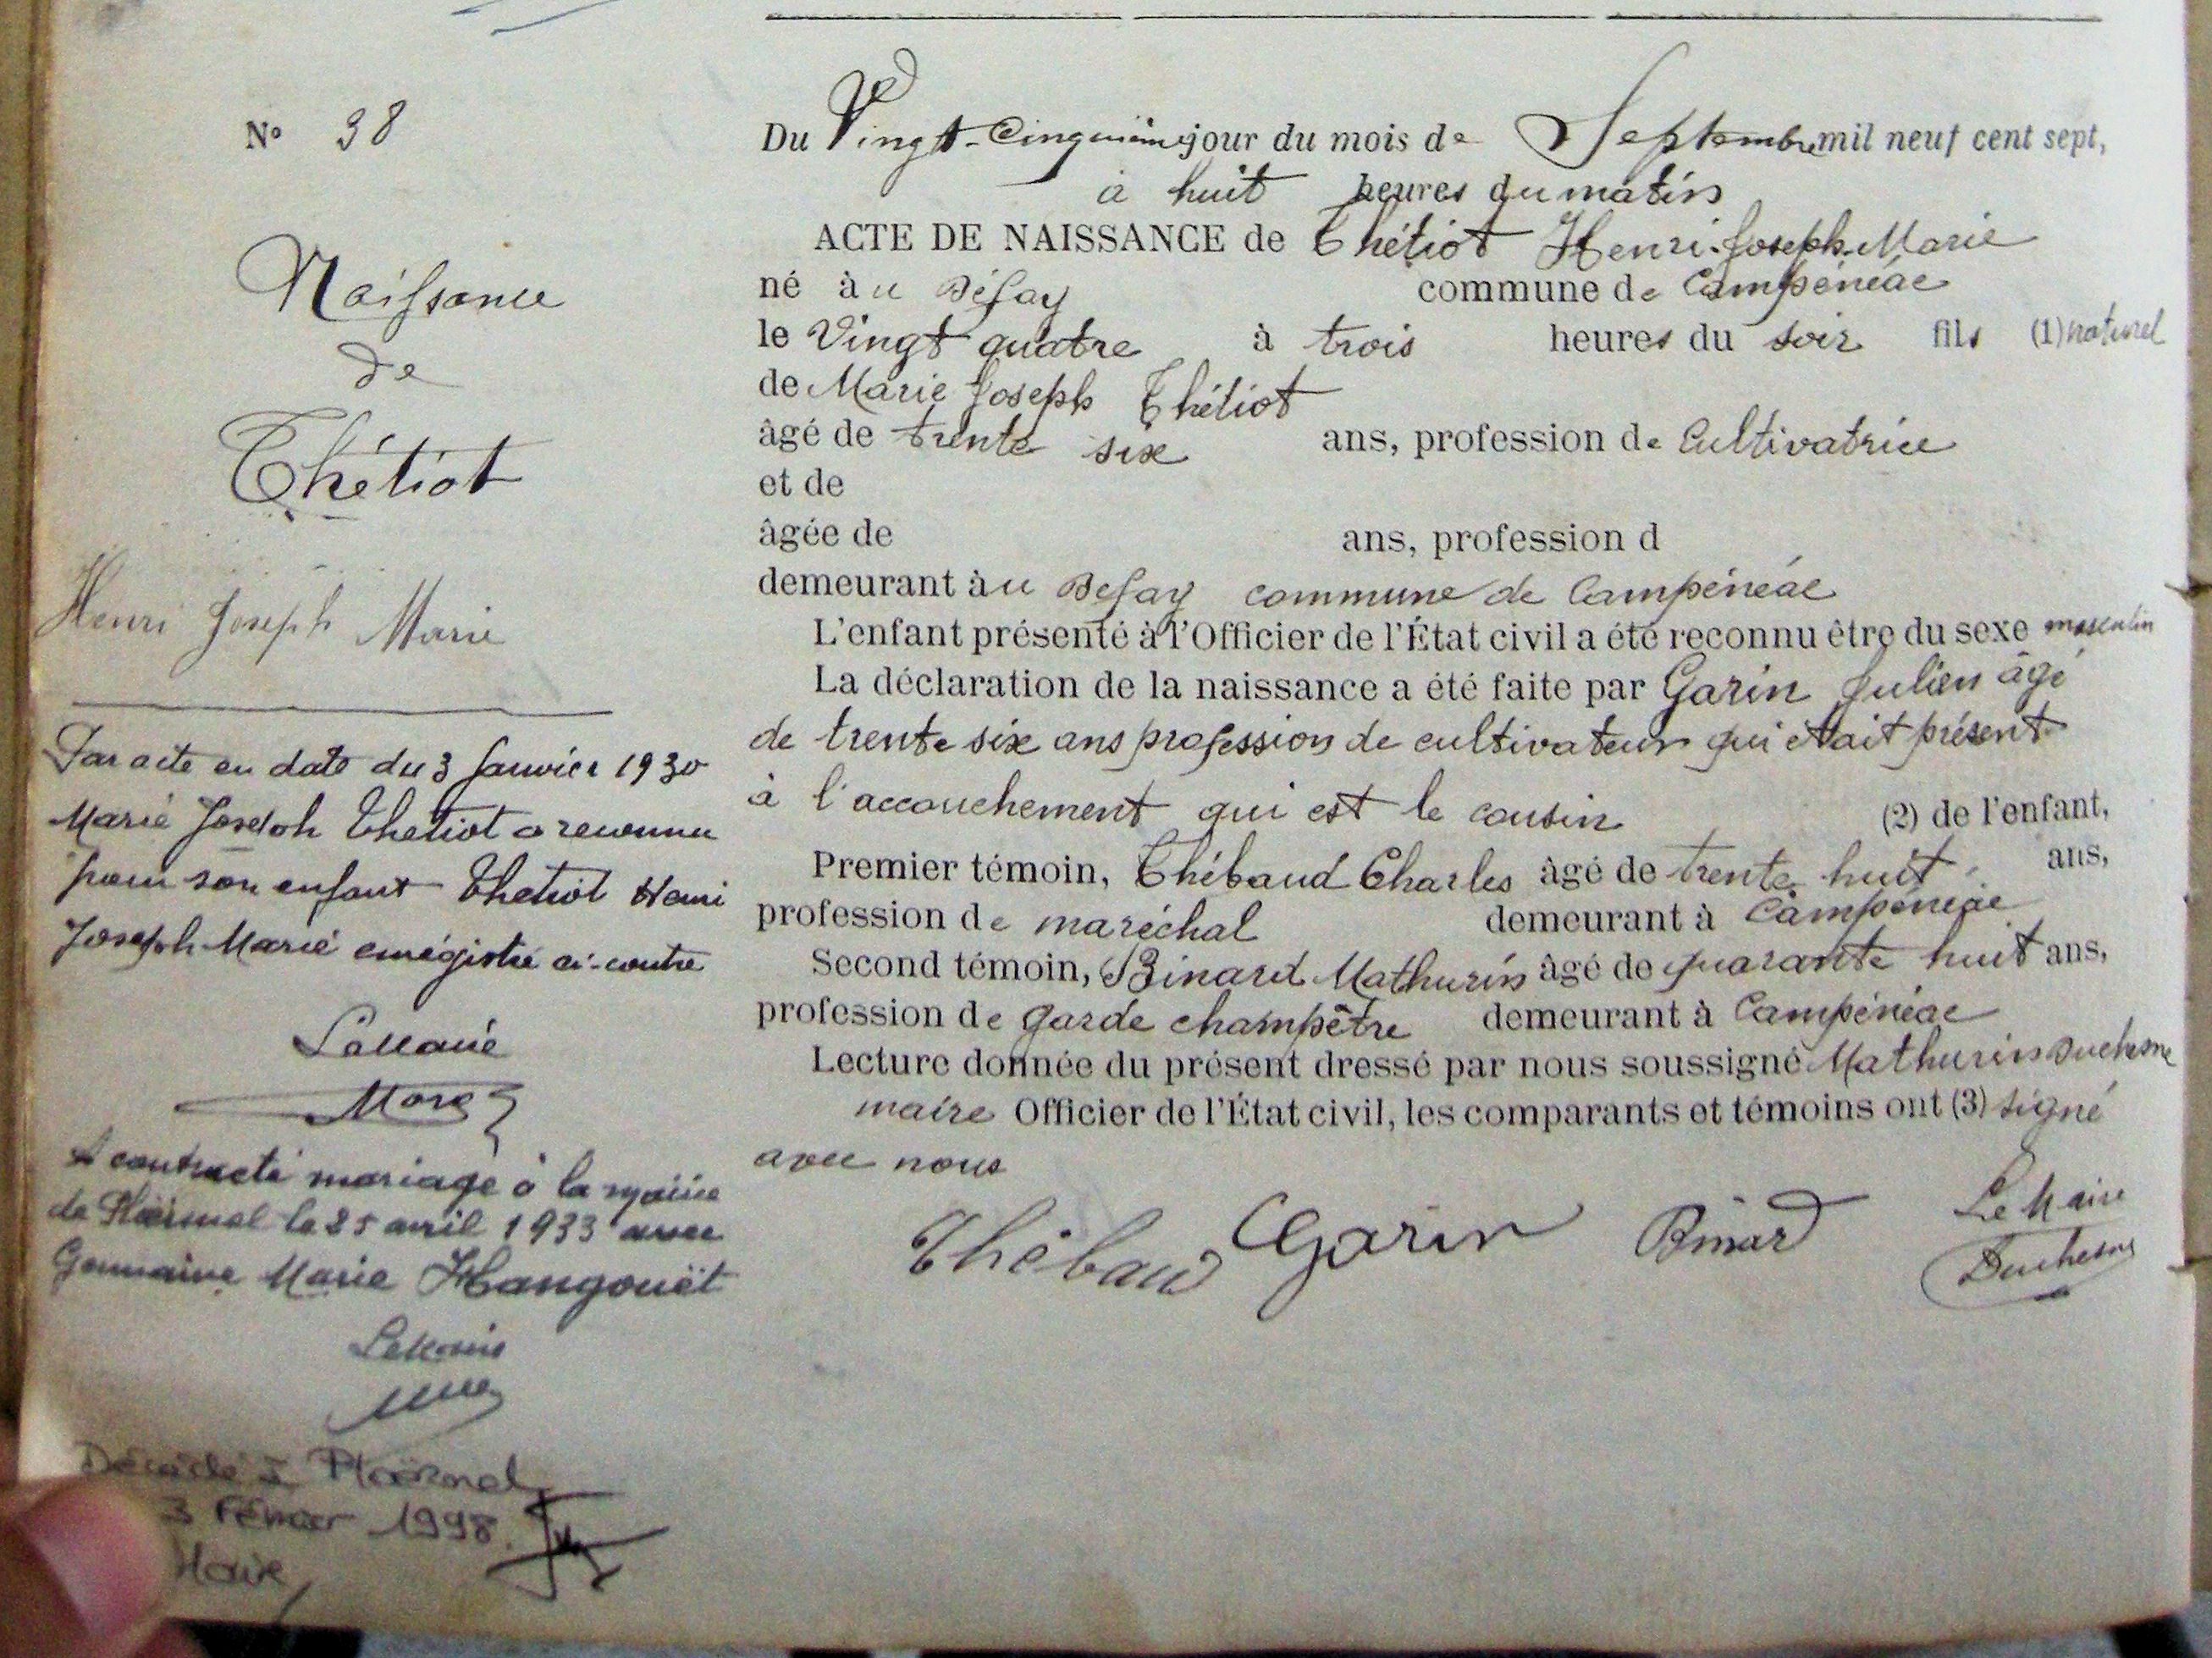 N° 38
Naissance
de
Thétiot
Henri Joseph Marie
Par acte en date du 3 Janvier 1930
Marie Joseph Thetiot a reconnu
pour son enfant Thetiot Henri
Joseph Marie enregistré ci-contre
Le Maire
A contracté mariage à la mairie
de Ploërmel le 25 avril 1933 avec
Germaine Marie Hangouët
Le Maire
Décédé à Ploërmel
3 Février 1998
Maire
Du Vingt-Cinquième jour du mois de Septembre mil neuf cent sept,
à huit heures du matin
ACTE DE NAISSANCE de Thétiot Henri-Joseph-Marie
né à u commune de Campénéac
le Vingt quatre à trois heures du soir fils (1) naturel
de Marie Joseph Thétiot
âgé de trente six ans, profession de Cultivatrice
et de
âgée de ans, profession d
demeurant à u commune de Campénéac
L'enfant présenté à l'Officier de l'État civil a été reconnu être du sexe masculin
La déclaration de la naissance a été faite par Garin Julien âgé
de trente six ans profession de cultivateur qui était présent
à l'accouchement qui est le cousin (2) de l'enfant,
Premier témoin, Thébaud Charles âgé de trente huit ans,
profession de maréchal demeurant à Campénéac
Second témoin, Binard Mathurin âgé de quarante huit ans,
profession de garde champêtre demeurant à Campénéac
Lecture donnée du présent dressé par nous soussigné Mathurin Duchesne
maire Officier de l'État civil, les comparants et témoins ont (3) signé
avec nous
Thébaud Garin Binard Le Maire
Duchesne